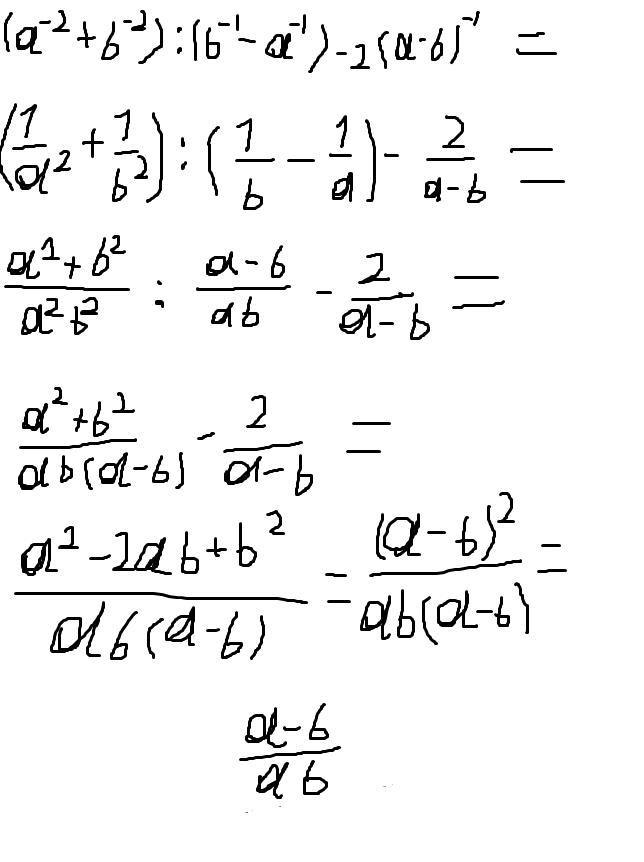 (a⁻² + b⁻²) : (b⁻¹ - a⁻¹) - 2(a-b)⁻¹ =
(1/a² + 1/b²) : (1/b - 1/a) - 2/(a-b) =
(a² + b²)/(a²b²) : (a-b)/(ab) - 2/(a-b) =
(a² + b²)/(ab(a-b)) - 2/(a-b) =
(a² - 2ab + b²)/(ab(a-b)) = (a-b)²/(ab(a-b)) =
(a-b)/(ab)